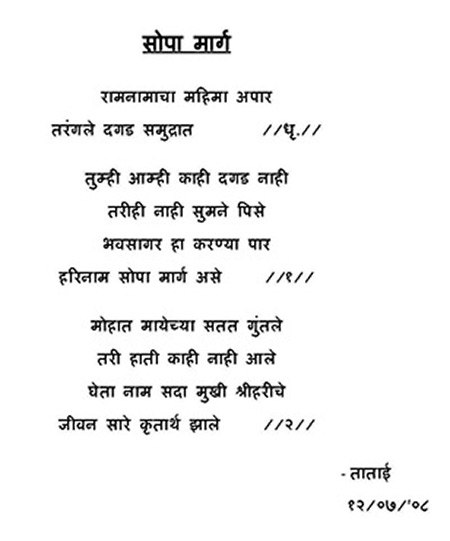 सोपा मार्ग
रामनामाचा महिमा अपार
तरंगले दगड समुद्रात //धृ.//
तुम्ही आम्ही काही दगड नाही
तरीही नाही सुमने पिसे
भवसागर हा करण्या पार
हरिनाम सोपा मार्ग असे //१//
मोहात मायेच्या सतत गुंतले
तरी हाती काही नाही आले
घेता नाम सदा मुखी श्रीहरीचे
जीवन सारे कृतार्थ झाले //२//
- ताताई
१२/०७/'०८